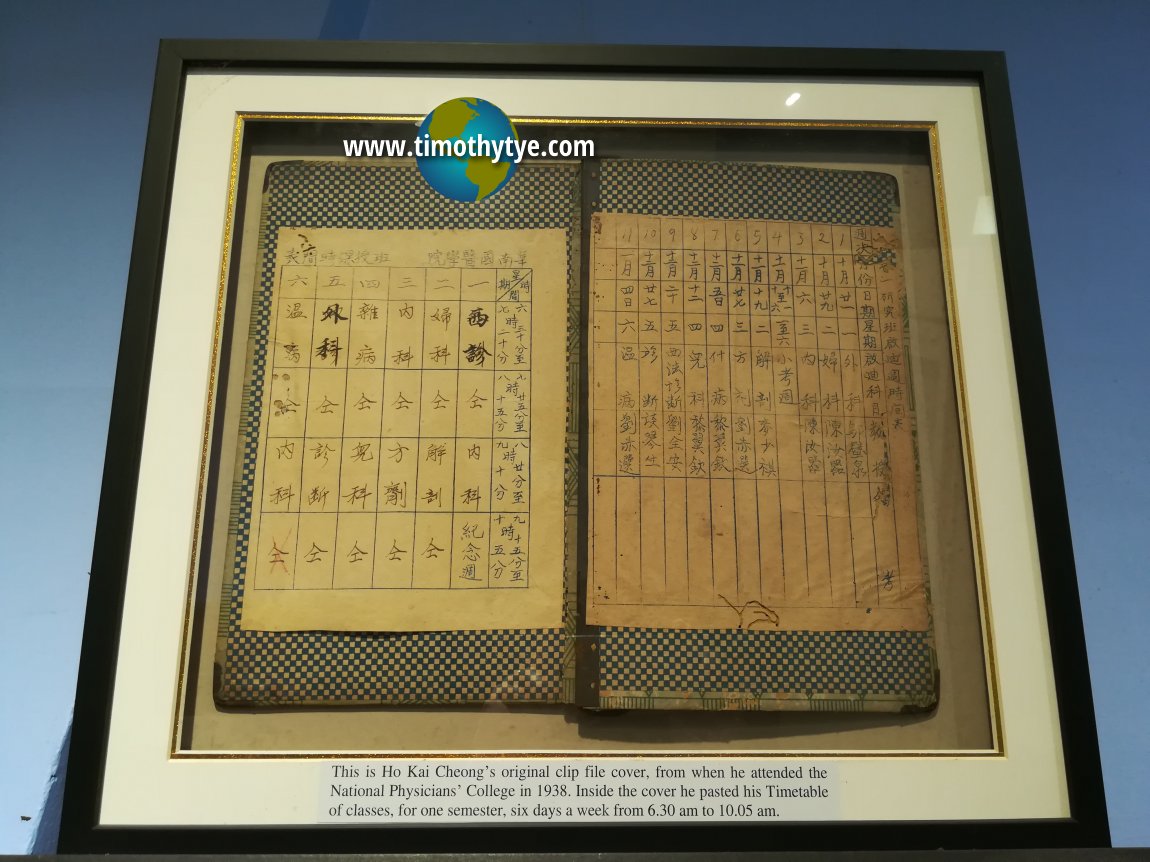 www.timothytye.com
華南國醫學院 班授課時間表
星期 時間 一 二 三 四 五 六
六時三十分至七時二十分 西診 婦科 內科 雜病 外科 溫病
七時廿五分至八時十五分 仝 仝 仝 仝 仝 仝
八時廿分至九時十分 內科 解剖 方劑 兒科 診斷 內科
九時十五分至十時五分 紀念週 仝 仝 仝 仝 仝
研究班啟迪週時间表
週次 月份 日期 星期 啟迪科目 教授 備考
1 十月 廿一 一 外科
2 十月 廿九 二 婦科 陳汝器
3 十一月 六 三 內科 陳汝器
4 十一月 十一至十六 一至六 小考週
5 十一月 十九 二 解剖 李少祺
6 十一月 廿七 三 方剂 劉亦選
7 十二月 五日 四 什病 黎翼欽
8 十二月 十二 四 兒科 黎翼欽
9 十二月 二十 五 西法診斷 劉全安
10 十二月 廿七 五 診断 談琴生
11 一月 四日 六 溫病 劉亦選
This is Ho Kai Cheong's original clip file cover, from when he attended the
National Physicians' College in 1938. Inside the cover he pasted his Timetable
of classes, for one semester, six days a week from 6.30 am to 10.05 am.